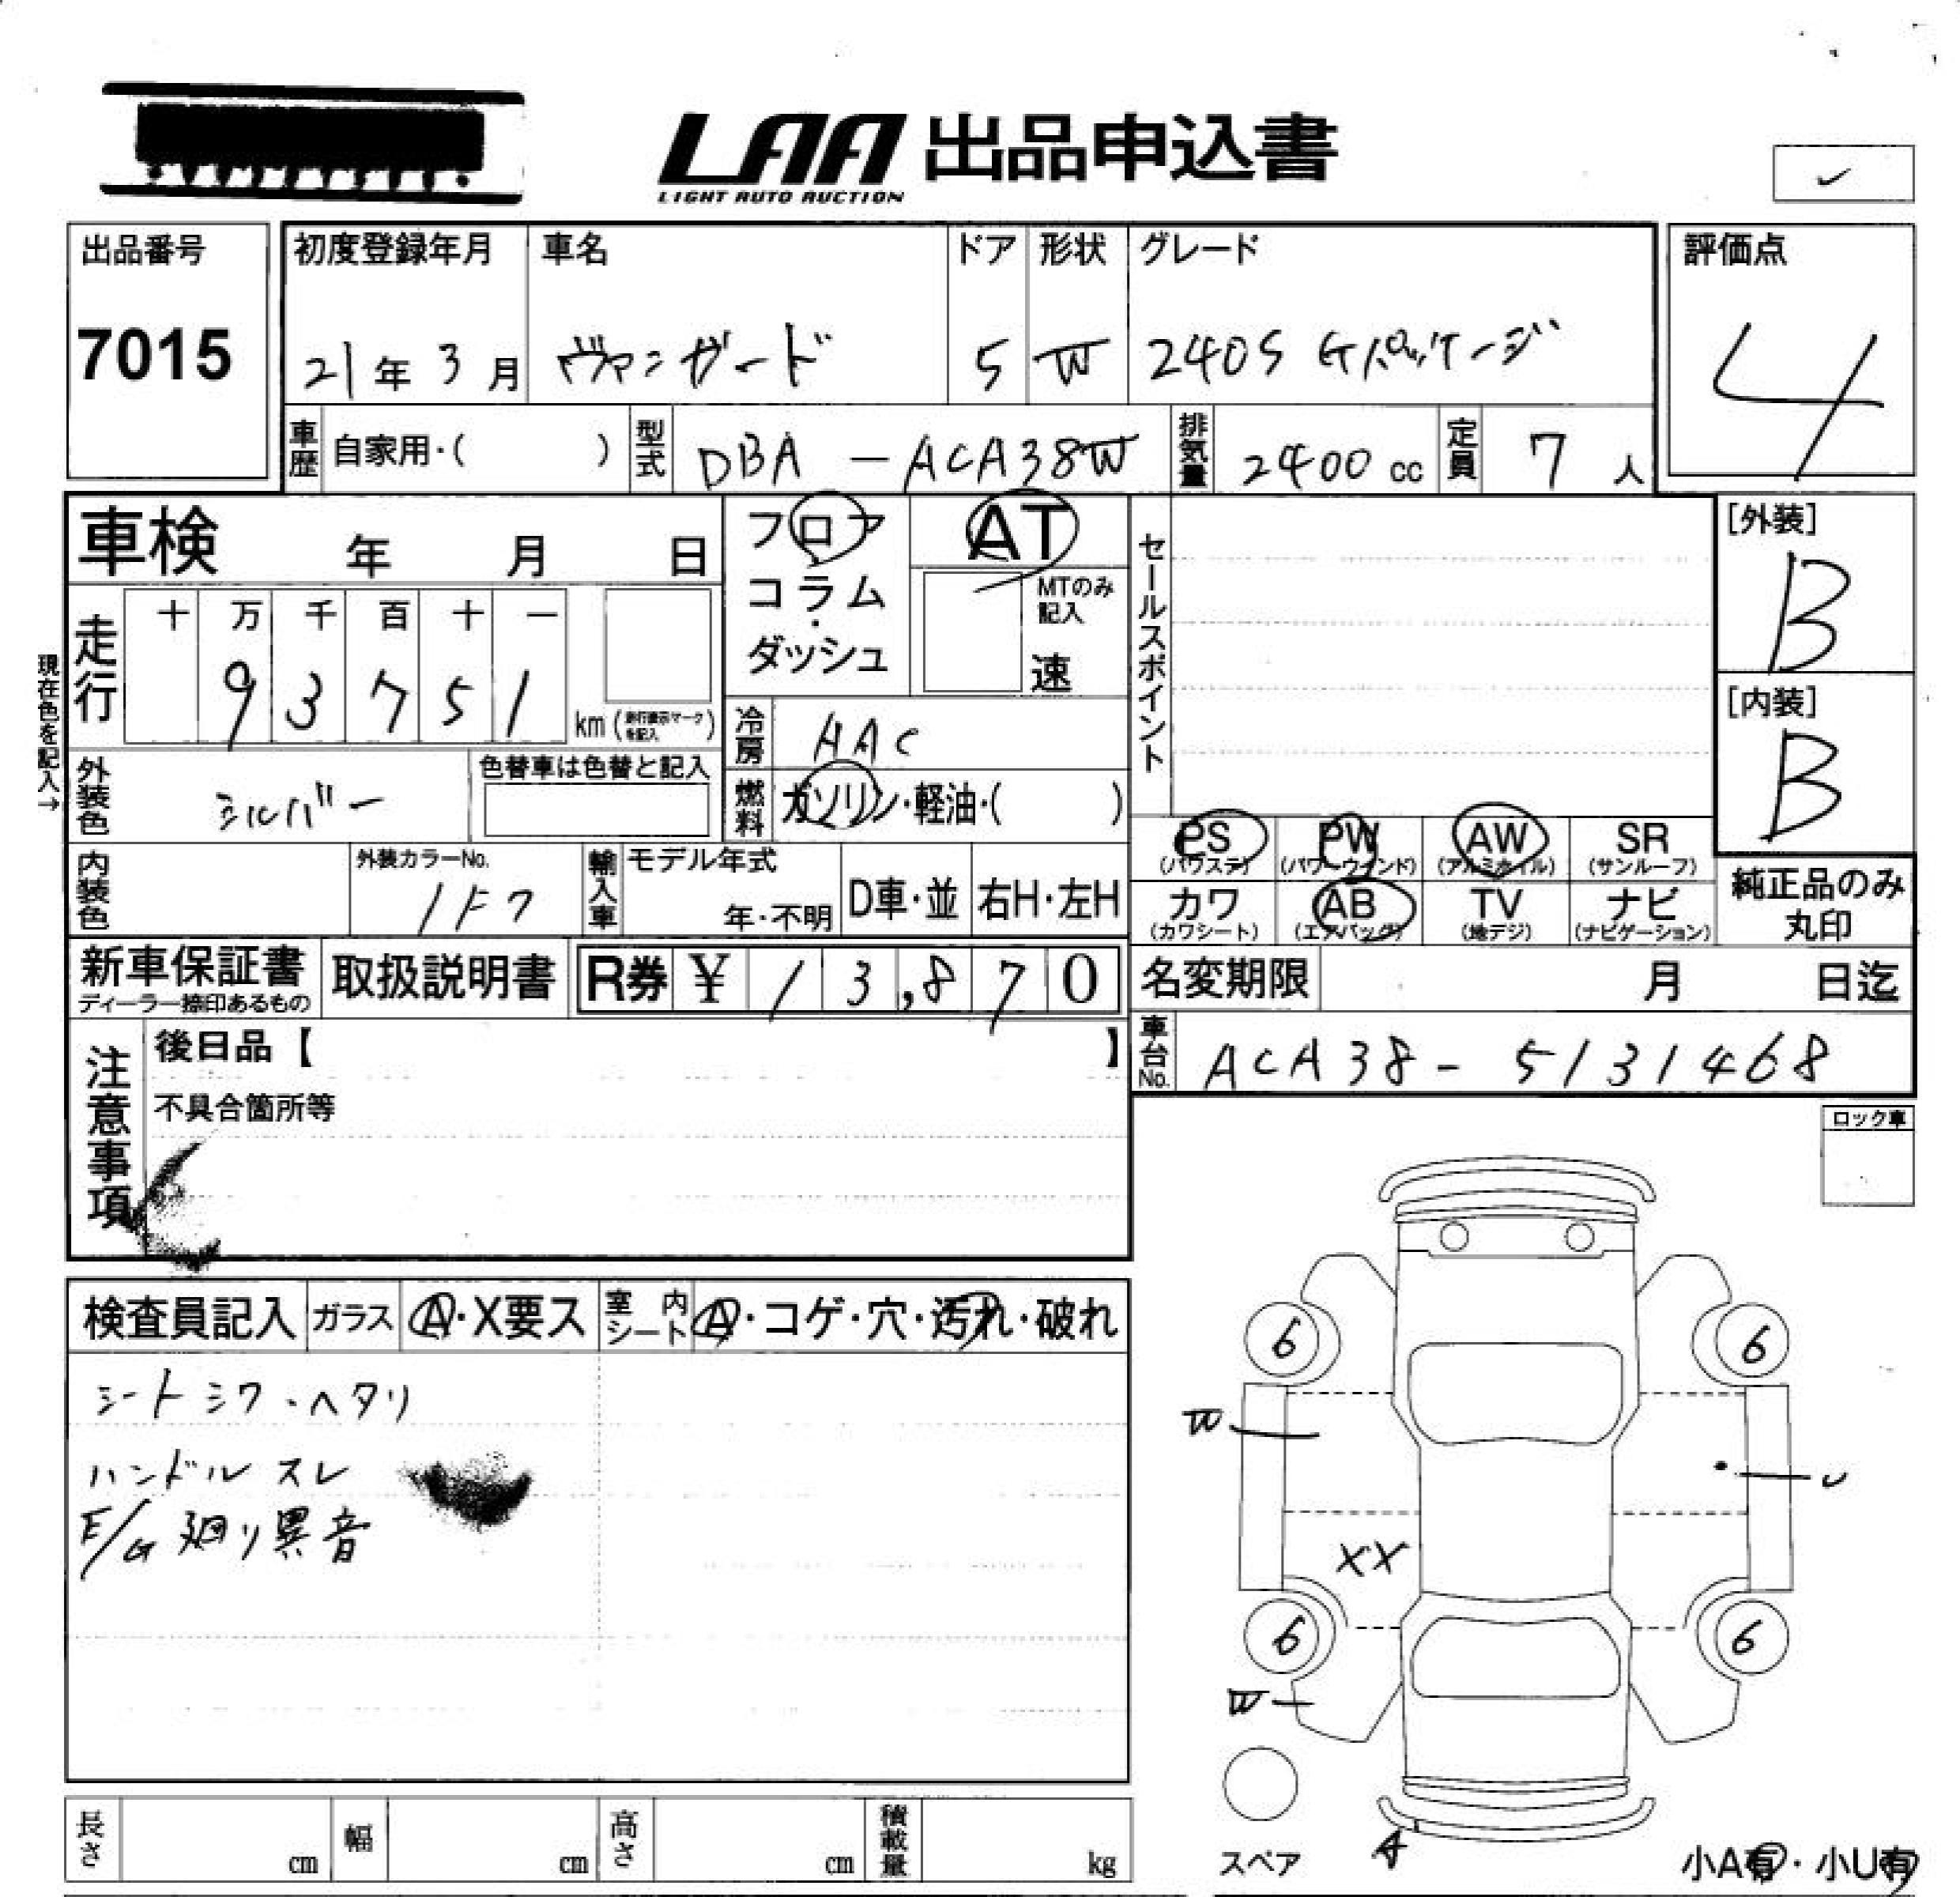 LAA 出品申込書
LIGHT AUTO AUCTION
✓
出品番号
7015
初度登録年月
21年 3月
車名
ヴァンガード
ドア
5
形状
W
グレード
240S Gパッケージ
評価点
4
車歴
自家用・( )
型式
DBA - ACA38W
排気量
2400 cc
定員
7 人
車検 年 月 日
フロア
コラム
・
ダッシュ
AT
MTのみ
記入
速
セールスポイント
[外装]
B
[内装]
B
現在色を記入→
走行
十 万 千 百 十 一
9 3 7 5 1
km (走行表示マークを記入)
冷房
HAC
燃料
ガソリン・軽油・( )
外装色
シルバー
色替車は色替と記入
PS
(パワステ)
PW
(パワーウインド)
AW
(アルミホイル)
SR
(サンルーフ)
カワ
(カワシート)
AB
(エアバッグ)
TV
(地デジ)
ナビ
(ナビゲーション)
純正品のみ
丸印
内装色
外装カラーNo.
1F7
輸入車
モデル年式
年・不明
D車・並
右H・左H
新車保証書
ディーラー捺印あるもの
取扱説明書
R券 ¥ 13,870
名変期限 月 日迄
車台No.
ACA38 - 5131468
注意事項
後日品【 】
不具合箇所等
ロック車
検査員記入
ガラス
A・X要ス
室内
シート
A・コゲ・穴・汚れ・破れ
シートシワ・ヘタリ
ハンドル スレ
E/G 廻り異音
6
6
W
U
XX
6
6
W
A
スペア
小A有・小U有
長さ cm
幅 cm
高さ cm
積載量 kg